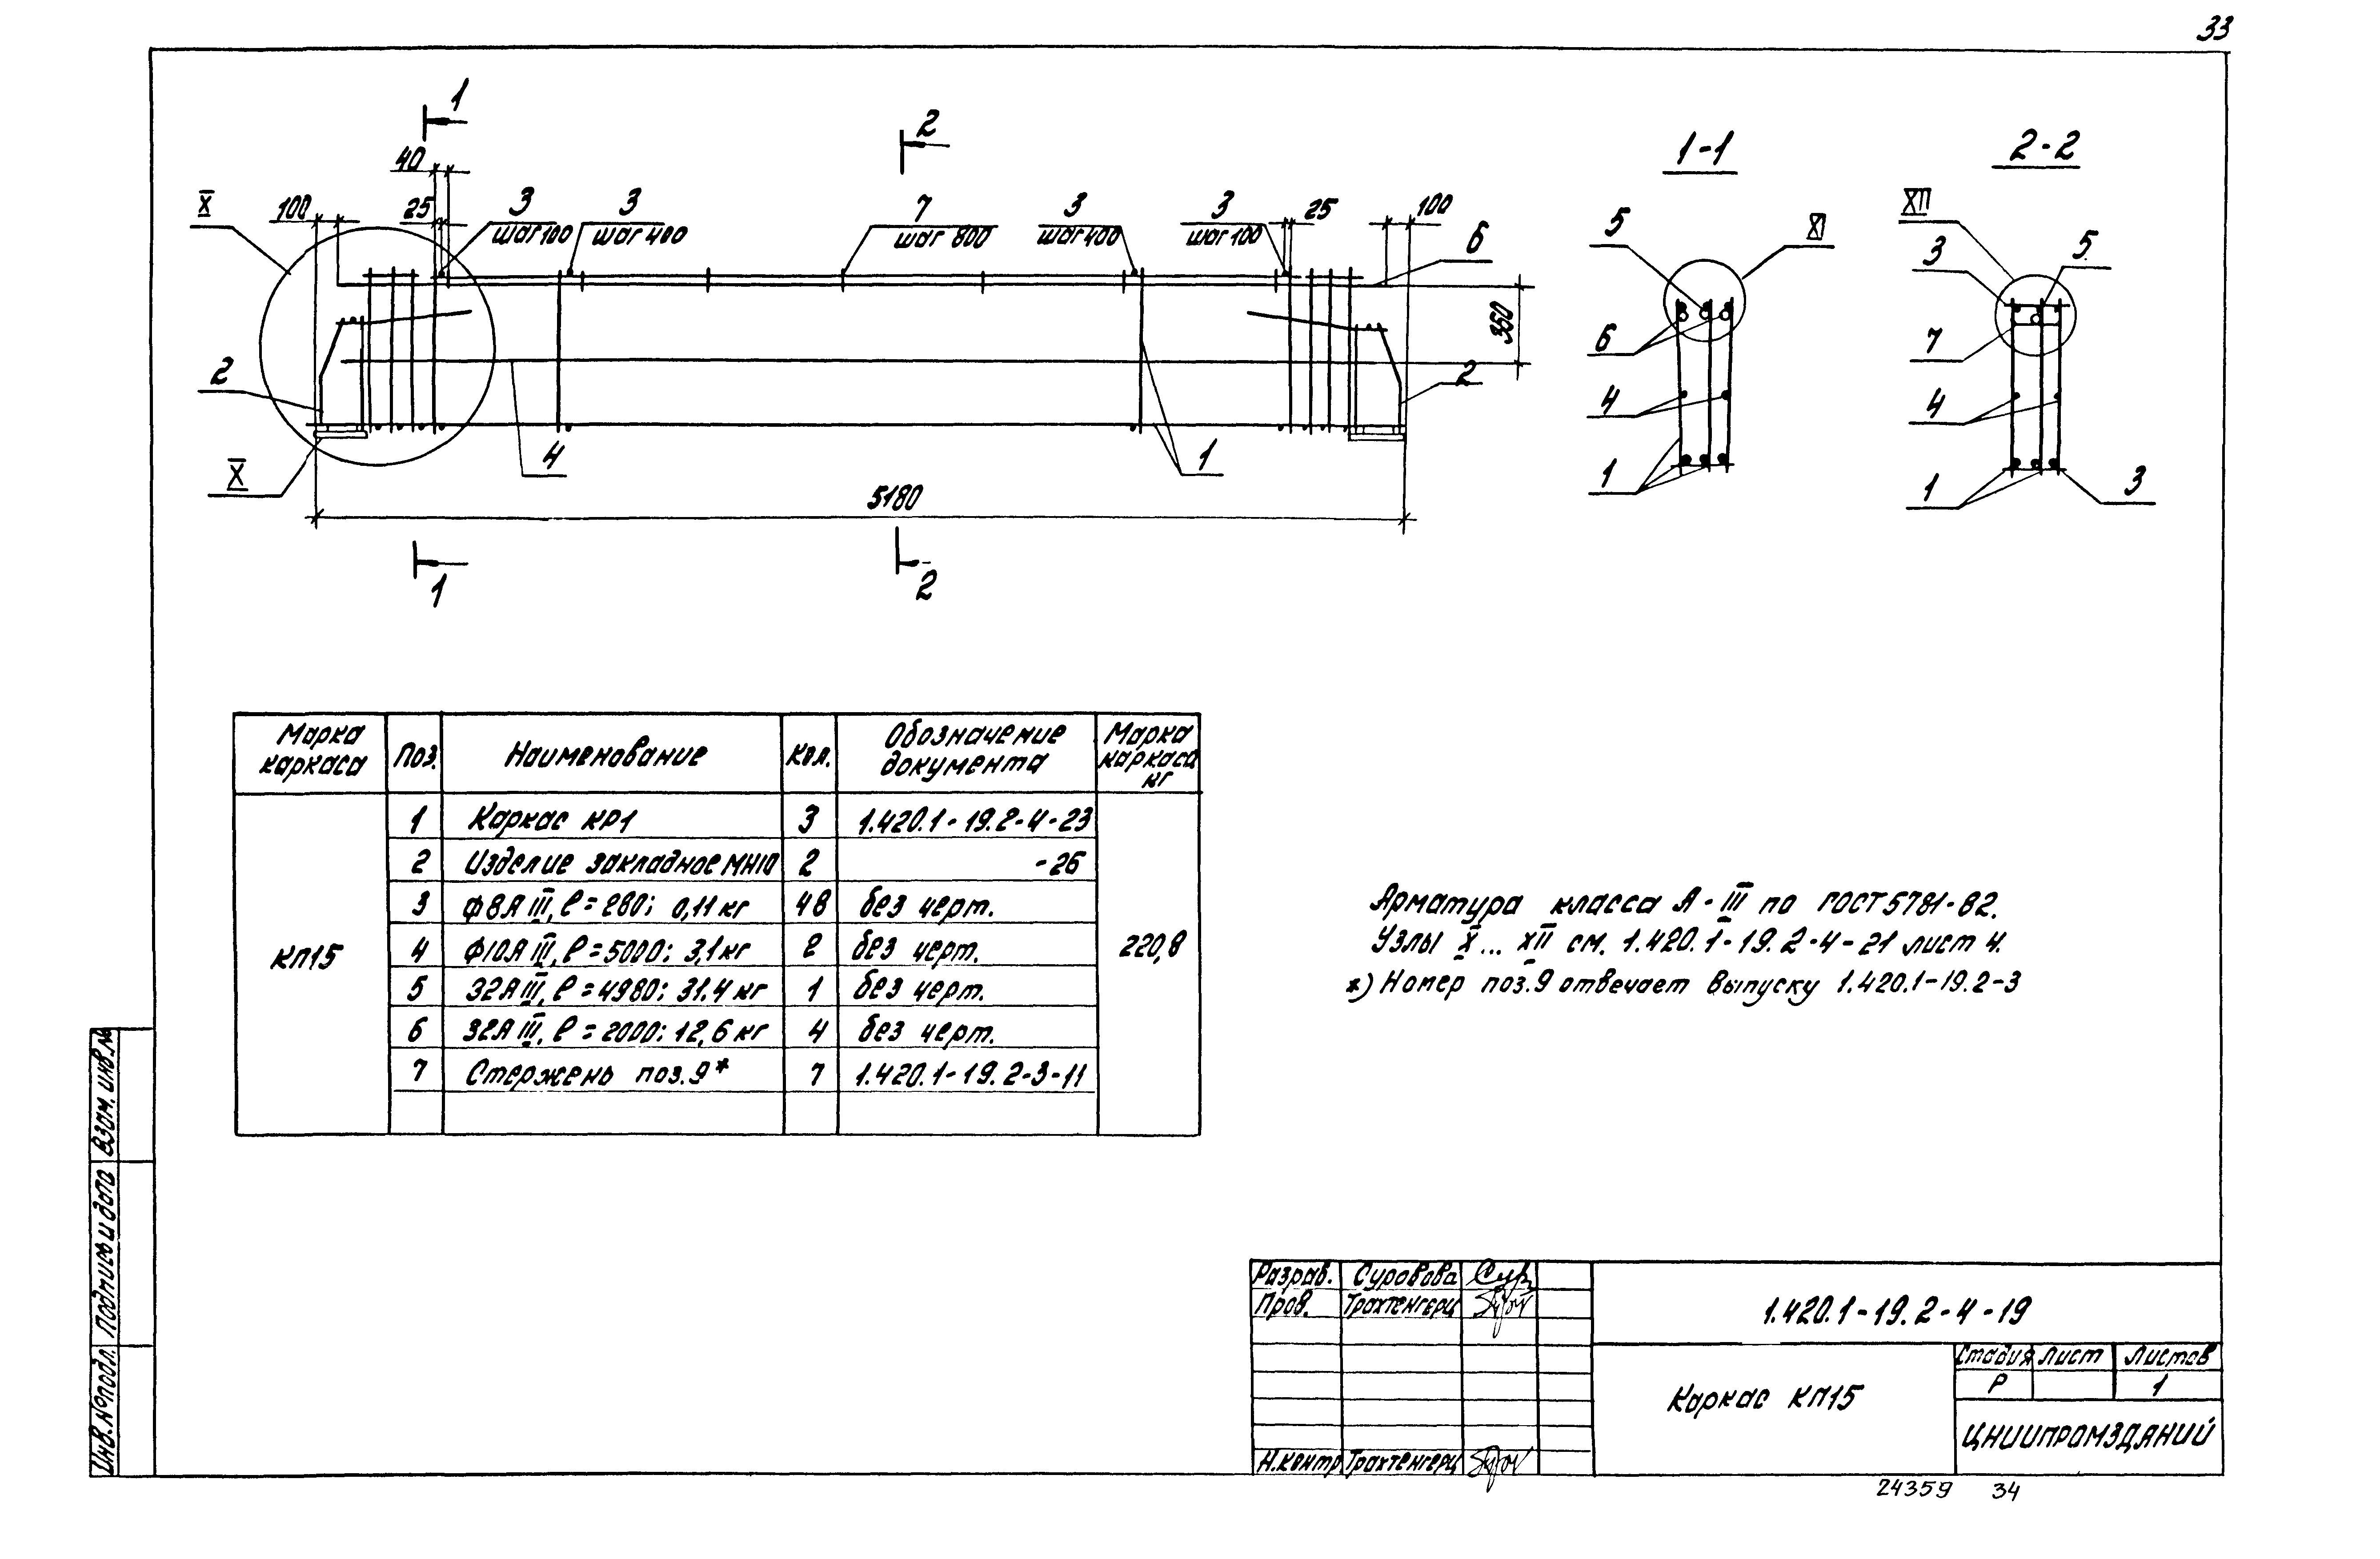 33
1
2
40
1-1
2-2
X
100
25
3
шаг 100
3
шаг 400
7
шаг 800
3
шаг 400
3
шаг 100
25
100
6
5
XI
XII
3
5
350
6
7
2
2
4
4
X
4
1
1
1
3
5180
1
2
Марка каркаса
Поз.
Наименование
Кол.
Обозначение документа
Марка каркаса кг
КП15
1 Каркас КР1 3 1.420.1-19.2-4-23
2 Изделие закладное МН10 2 -26
3 Ф8АIII, ℓ=280; 0,11кг 48 без черт.
4 Ф10АIII, ℓ=5000; 3,1кг 2 без черт.
5 32АIII, ℓ=4980; 31.4кг 1 без черт.
6 32АIII, ℓ=2000; 12,6кг 4 без черт.
7 Стержень поз.9* 7 1.420.1-19.2-3-11
220,8
Арматура класса А-III по ГОСТ 5781-82.
Узлы X... XII см. 1.420.1-19.2-4-21 лист 4.
*) Номер поз.9 отвечает Выпуску 1.420.1-19.2-3
Взам. инв.№
Подпись и дата
Инв.№подл.
Разраб. Суровова
Пров. Трахтенгерц
Н.контр Трахтенгерц
1.420.1-19.2-4-19
Каркас КП15
Стадия Лист Листов
Р 1
ЦНИИПРОМЗДАНИЙ
24359 34